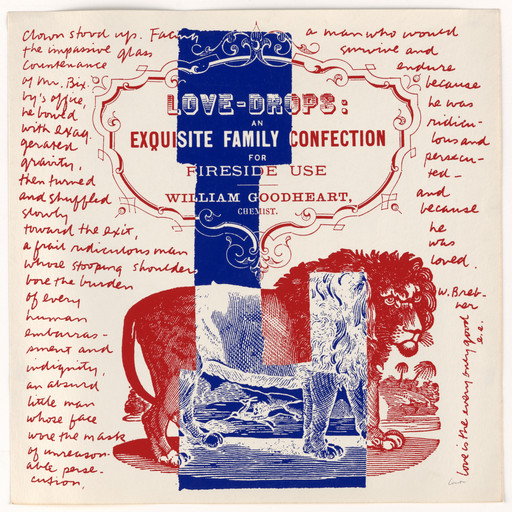 clown stood up. Facing
the impassive glass
countenance
of Mr. Bix
by's office,
he bowed
with exag-
gerated
gravity,
then turned
and shuffled
slowly
toward the exit,
a frail ridiculous man
whose stooping shoulder
bore the burden
of every
human
embarras-
sment and
indignity,
an absurd
little man
whose face
wore the mask
of unreason-
able perse-
cution,
a man who would
survive and
endure
because
he was
ridicu-
lous and
persecu-
ted –
and
because
he
was
loved.
W. Breb-
ner
LOVE-DROPS:
AN
EXQUISITE FAMILY CONFECTION
FOR
FIRESIDE USE
WILLIAM GOODHEART,
CHEMIST.
love is the every only god
e.e.